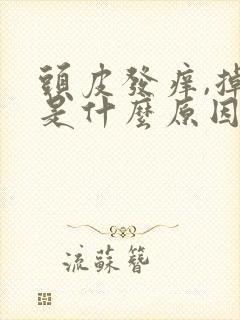 頭皮發痒,掉
是什麼原因
流蘇簪